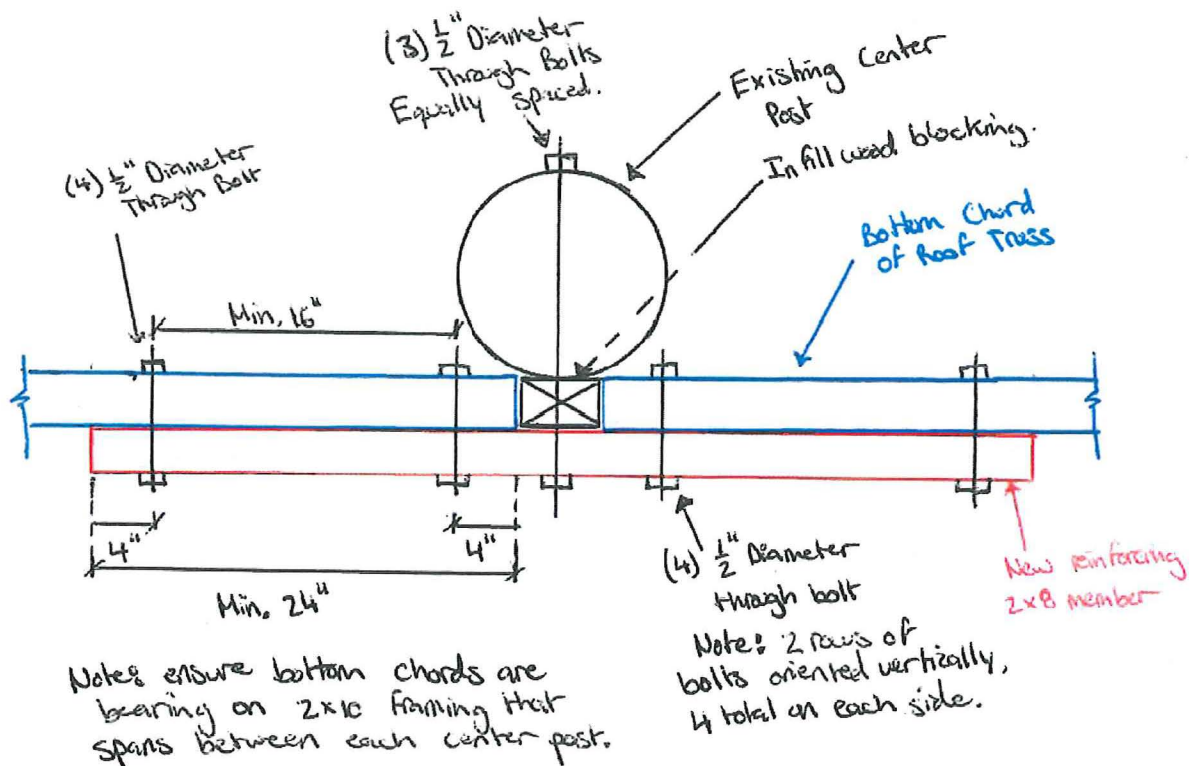 (3) 1/2" Diameter
Through Bolts
Equally spaced.
Existing Center
Post
Infill wood blocking.
(4) 1/2" Diameter
Through Bolt
Bottom Chord
of Roof Truss
Min. 16"
4"
4"
Min. 24"
(4) 1/2" Diameter
through bolt
Note: 2 rows of
bolts oriented vertically,
4 total on each side.
New reinforcing
2x8 member
Note: ensure bottom chords are
bearing on 2x10 framing that
spans between each center post.